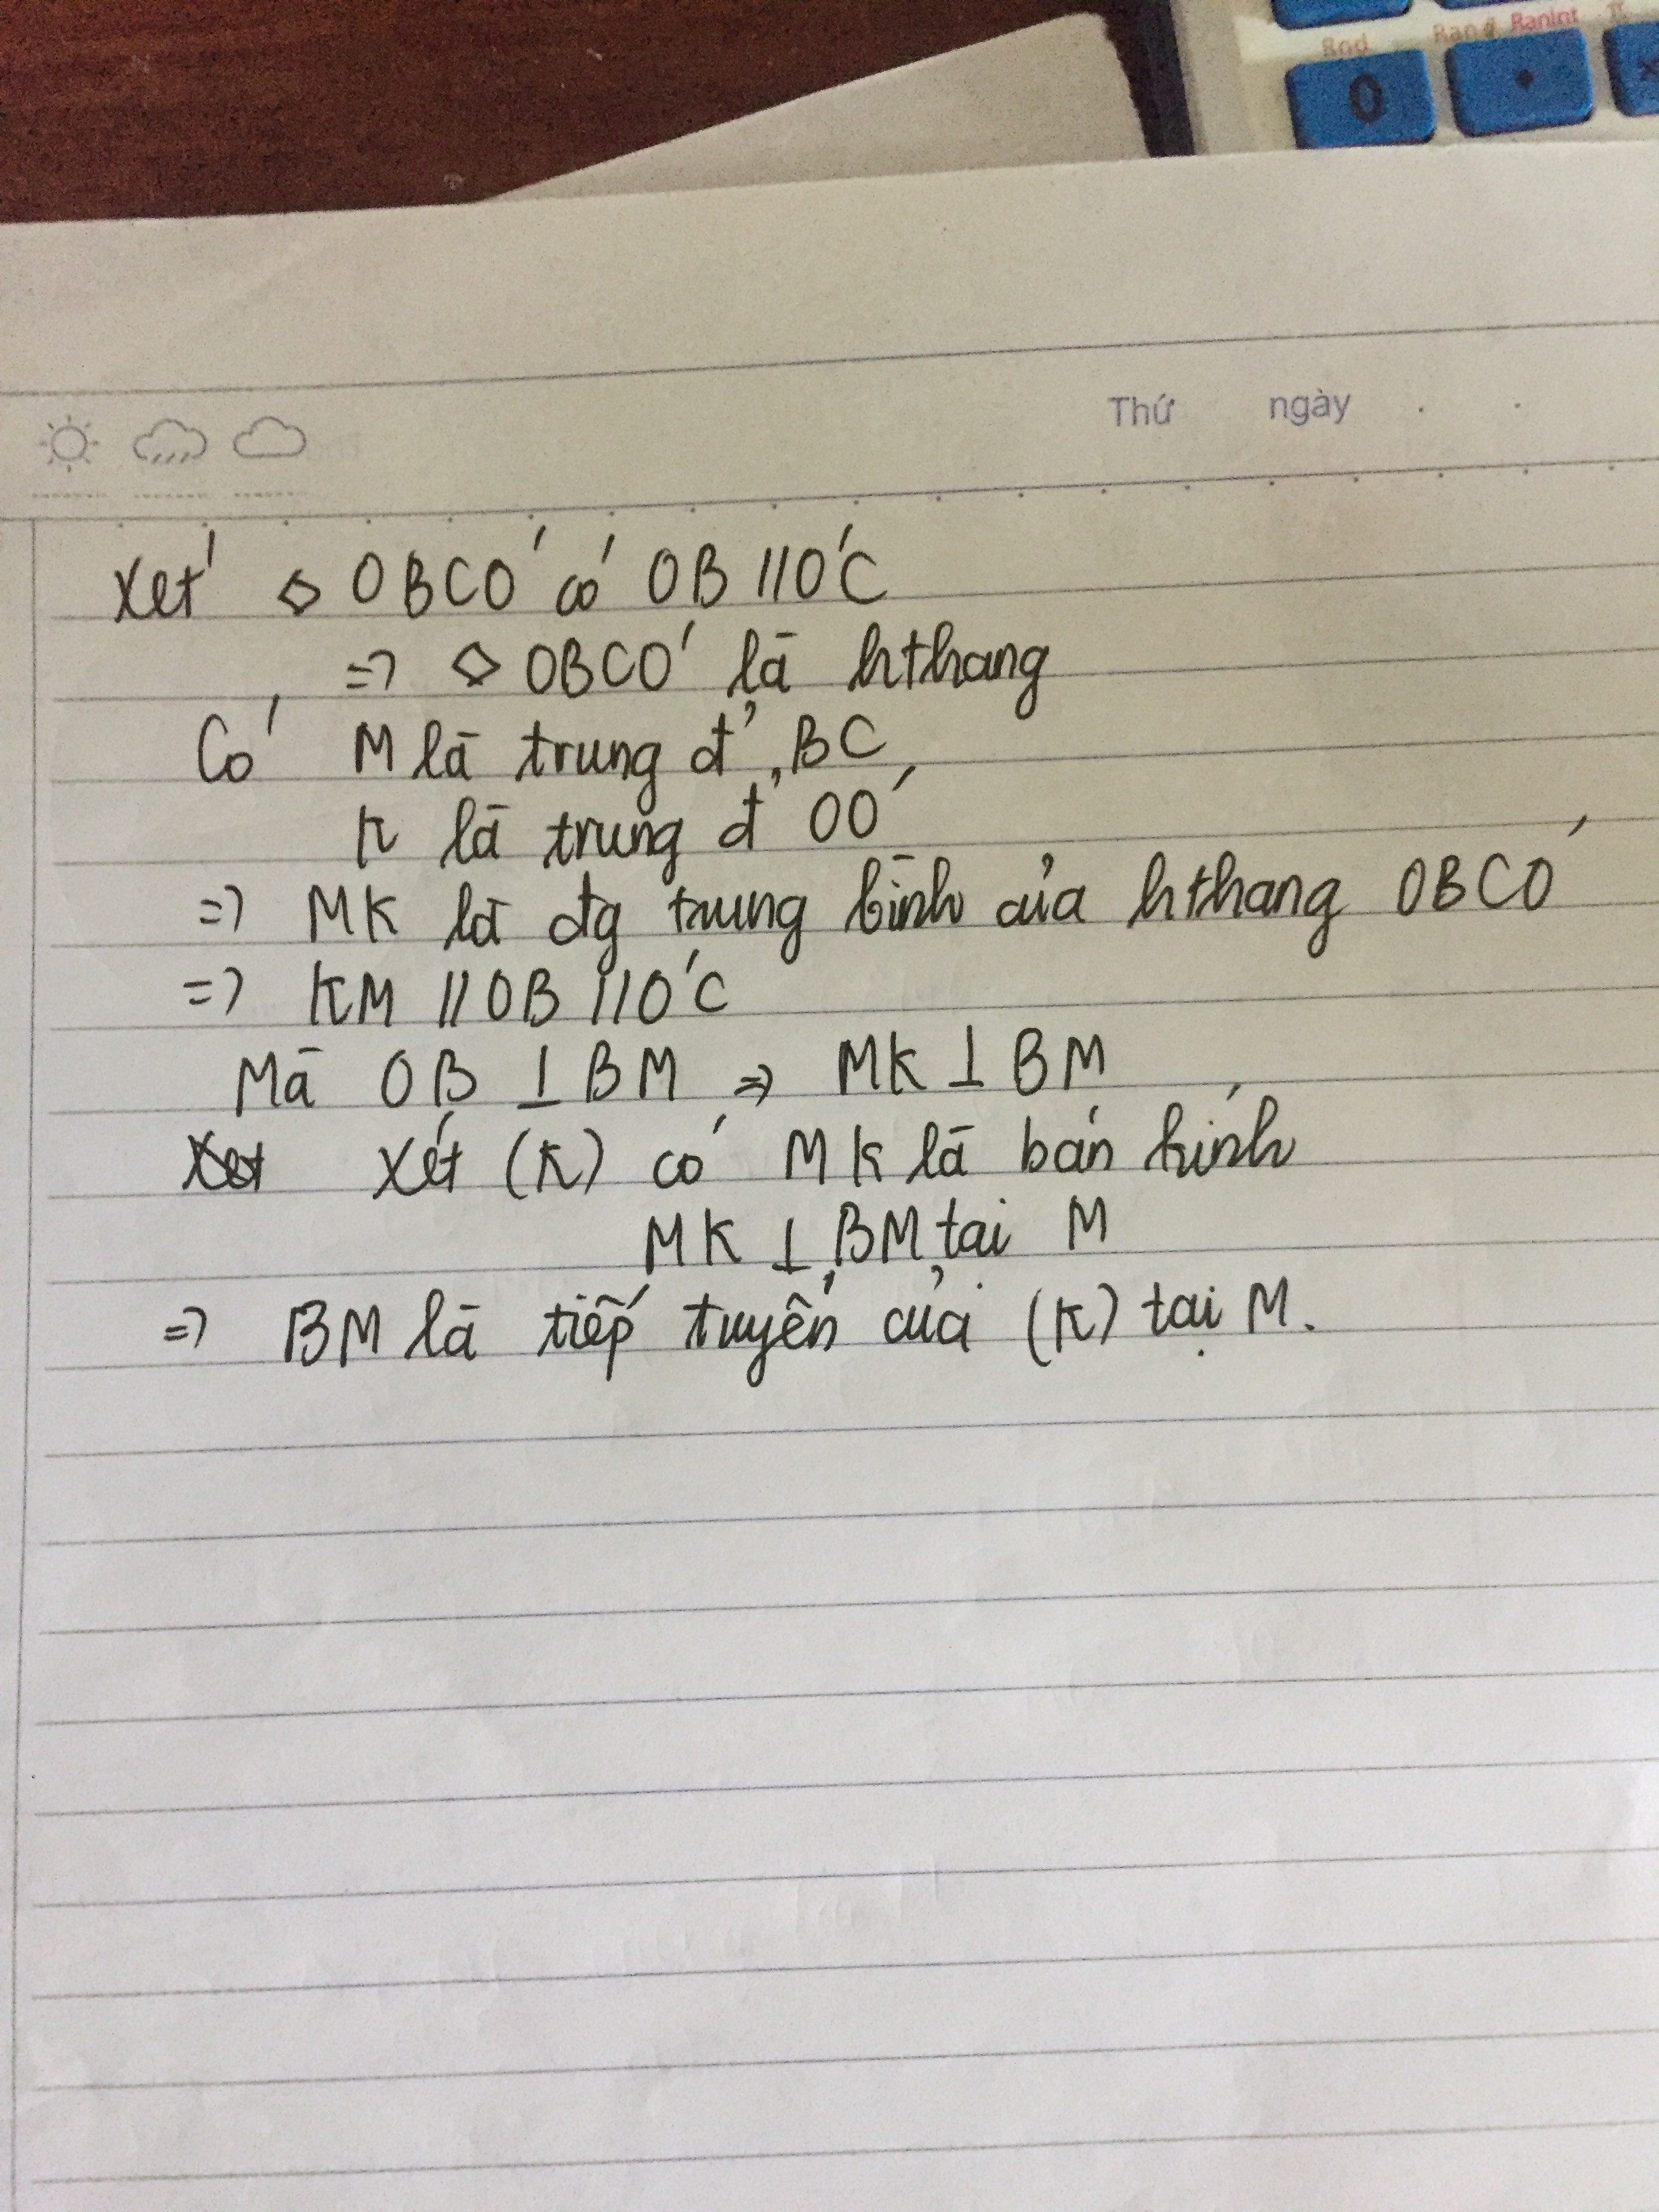 Rnd Ran# Ranint π
0 · ×
Thứ ngày . .
Xét ◇ OBCO' có OB // O'C
=> ◇ OBCO' là hthang
Có M là trung đ' BC
K là trung đ' OO'
=> MK là đg trung bình của hthang OBCO'
=> KM // OB // O'C
Mà OB ⊥ BM => MK ⊥ BM
Xét (K) có MK là bán kính
MK ⊥ BM tại M
=> BM là tiếp tuyến của (K) tại M.